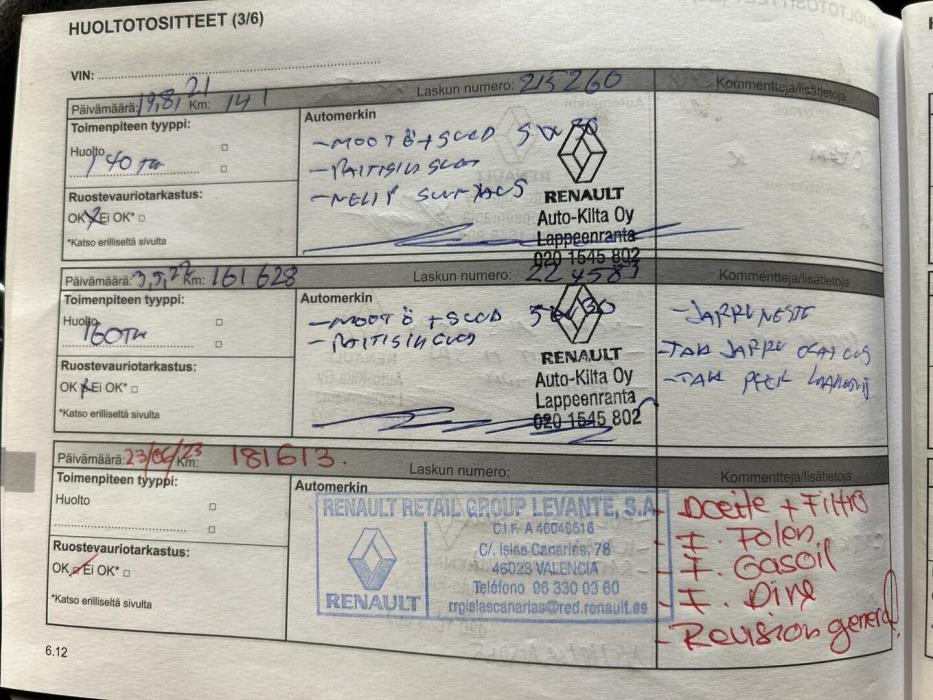 HUOLTOTOSITTEET (3/6)
VIN:
Päivämäärä: 19,8,21 Km: 141 Laskun numero: 215260 Kommentteja/lisätietoja
Toimenpiteen tyyppi:
Huolto
140 TKM
Ruostevauriotarkastus:
OK Ei OK*
*Katso erilliseltä sivulta
Automerkin
- MOOT Ö + SUOD 5W30
- RAITISILS SUOD
RENAULT
Auto-Kilta Oy
Lappeenranta
020 1545 802
Päivämäärä: 3,5,22 Km: 161 628 Laskun numero: 224583 Kommentteja/lisätietoja
Toimenpiteen tyyppi:
Huolto
160 TKM
Ruostevauriotarkastus:
OK Ei OK*
*Katso erilliseltä sivulta
Automerkin
- MOOT Ö + SUOD 5W30
- RAITISILSUOD
RENAULT
Auto-Kilta Oy
Lappeenranta
020 1545 802
- JARRUNESTE
- TAK JARRU
- TAK
Päivämäärä: 23/06/23 Km: 181613. Laskun numero: Kommentteja/lisätietoja
Toimenpiteen tyyppi:
Huolto
Ruostevauriotarkastus:
OK Ei OK*
*Katso erilliseltä sivulta
Automerkin
RENAULT RETAIL GROUP LEVANTE, S.A
C.I.F. A 46049516
C/. Islas Canarias, 78
46023 VALENCIA
Teléfono 96 330 03 60
rrgislascanarias@red.renault.es
RENAULT
- Aceite + Filtro
- F. Polen
- F. Gasoil
- F. Aire
- Revision general
6.12